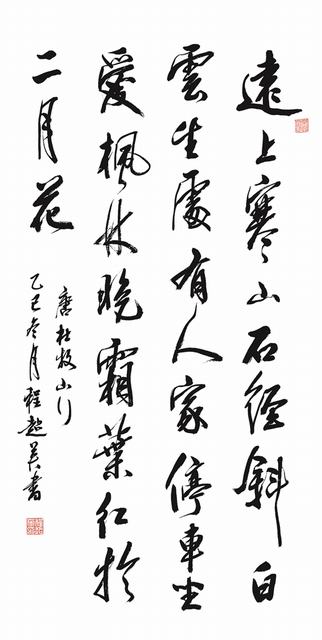 遠上寒山石徑斜白
雲生處有人家停車坐
愛楓林晚霜葉紅於
二月花
唐杜牧山行
乙巳冬月程超英書